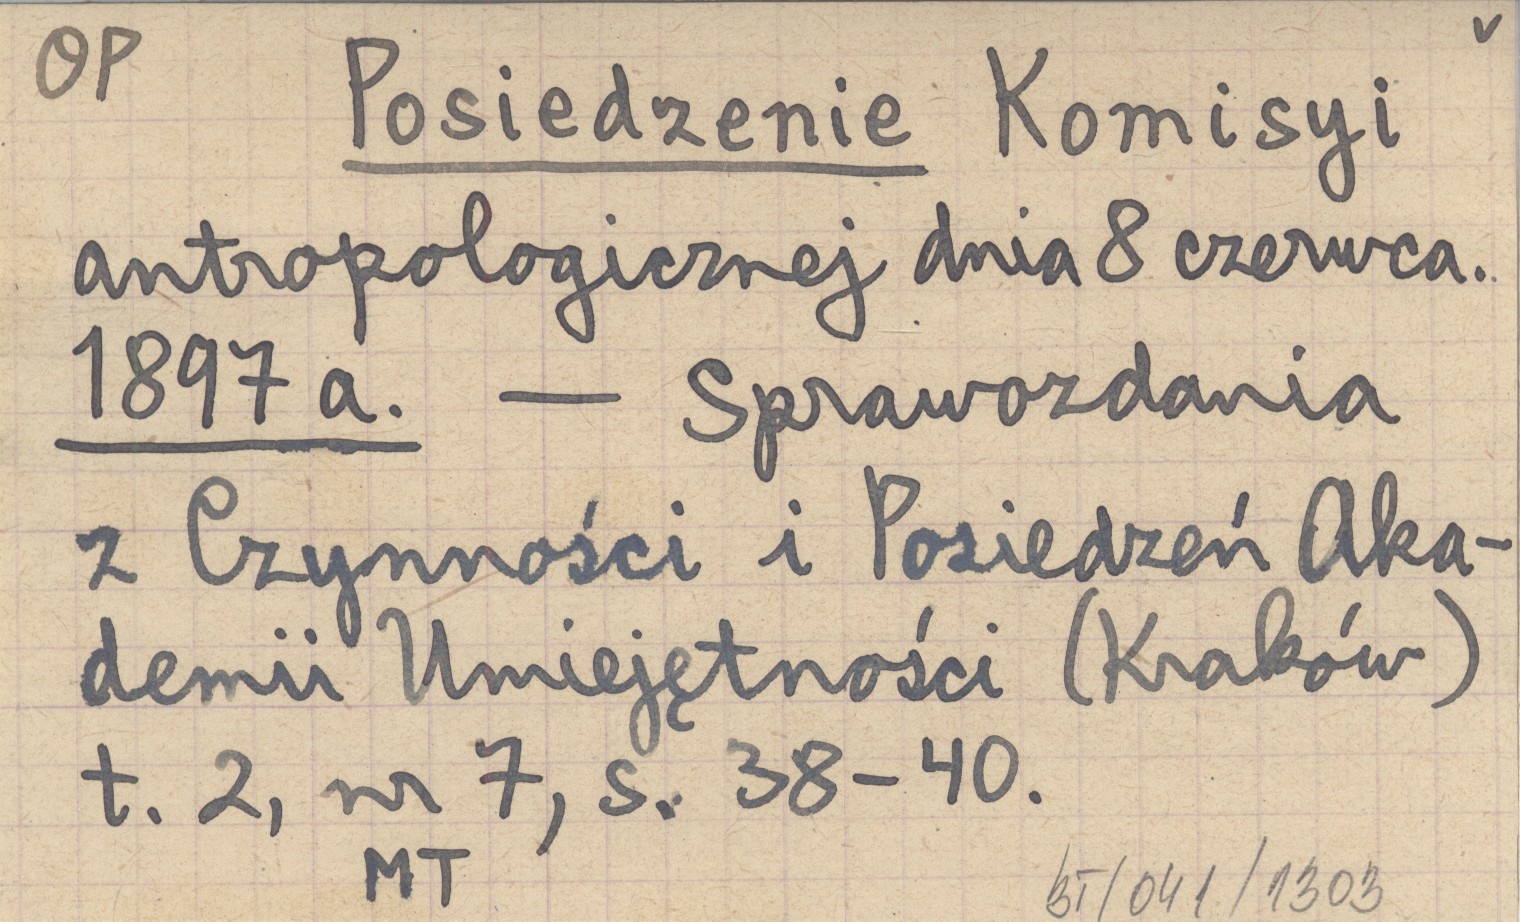 OP v
Posiedzenie Komisyi
antropologicznej dnia 8 czerwca.
1897 a. — Sprawozdania
z Czynności i Posiedzeń Aka-
demii Umiejętności (Kraków)
t. 2, nr 7, s. 38-40.
MT
BT/041/1303